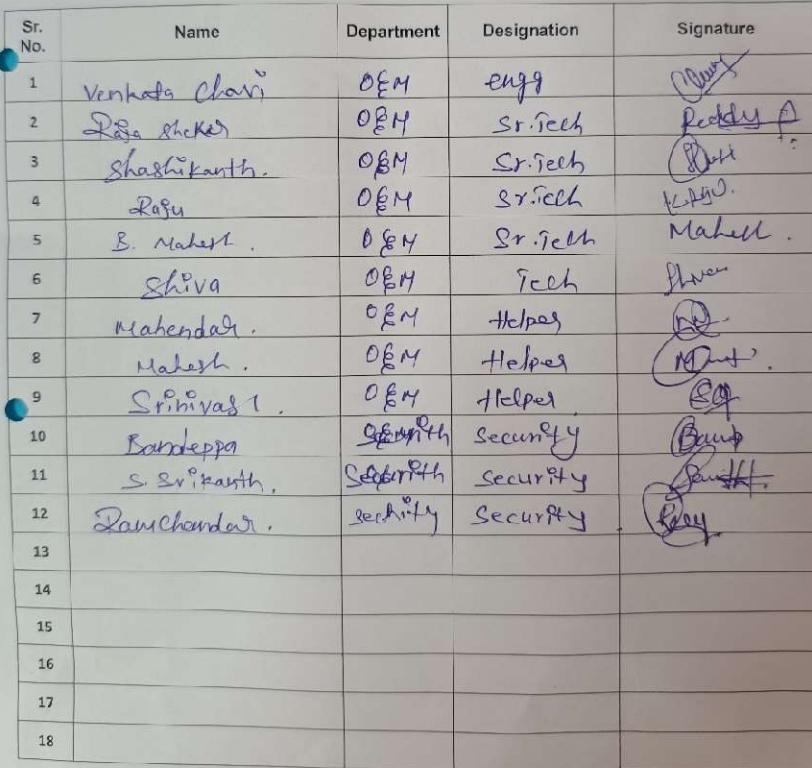 Sr. No. Name Department Designation Signature
1 Venkata Chari O&M engg
2 Raja Sheker O&M Sr.Tech Reddy
3 Shashikanth. O&M Sr.Tech
4 Raju O&M Sr.Tech
5 B. Mahesh. O&M Sr.Tech Mahesh.
6 Shiva O&M Tech Shiva
7 Mahendar. O&M Helper
8 Mahesh. O&M Helper
9 Srinivas O&M Helper
10 Bandeppa Security
11 S. Srikanth. Security
12 RamChandar. Security
13
14
15
16
17
18